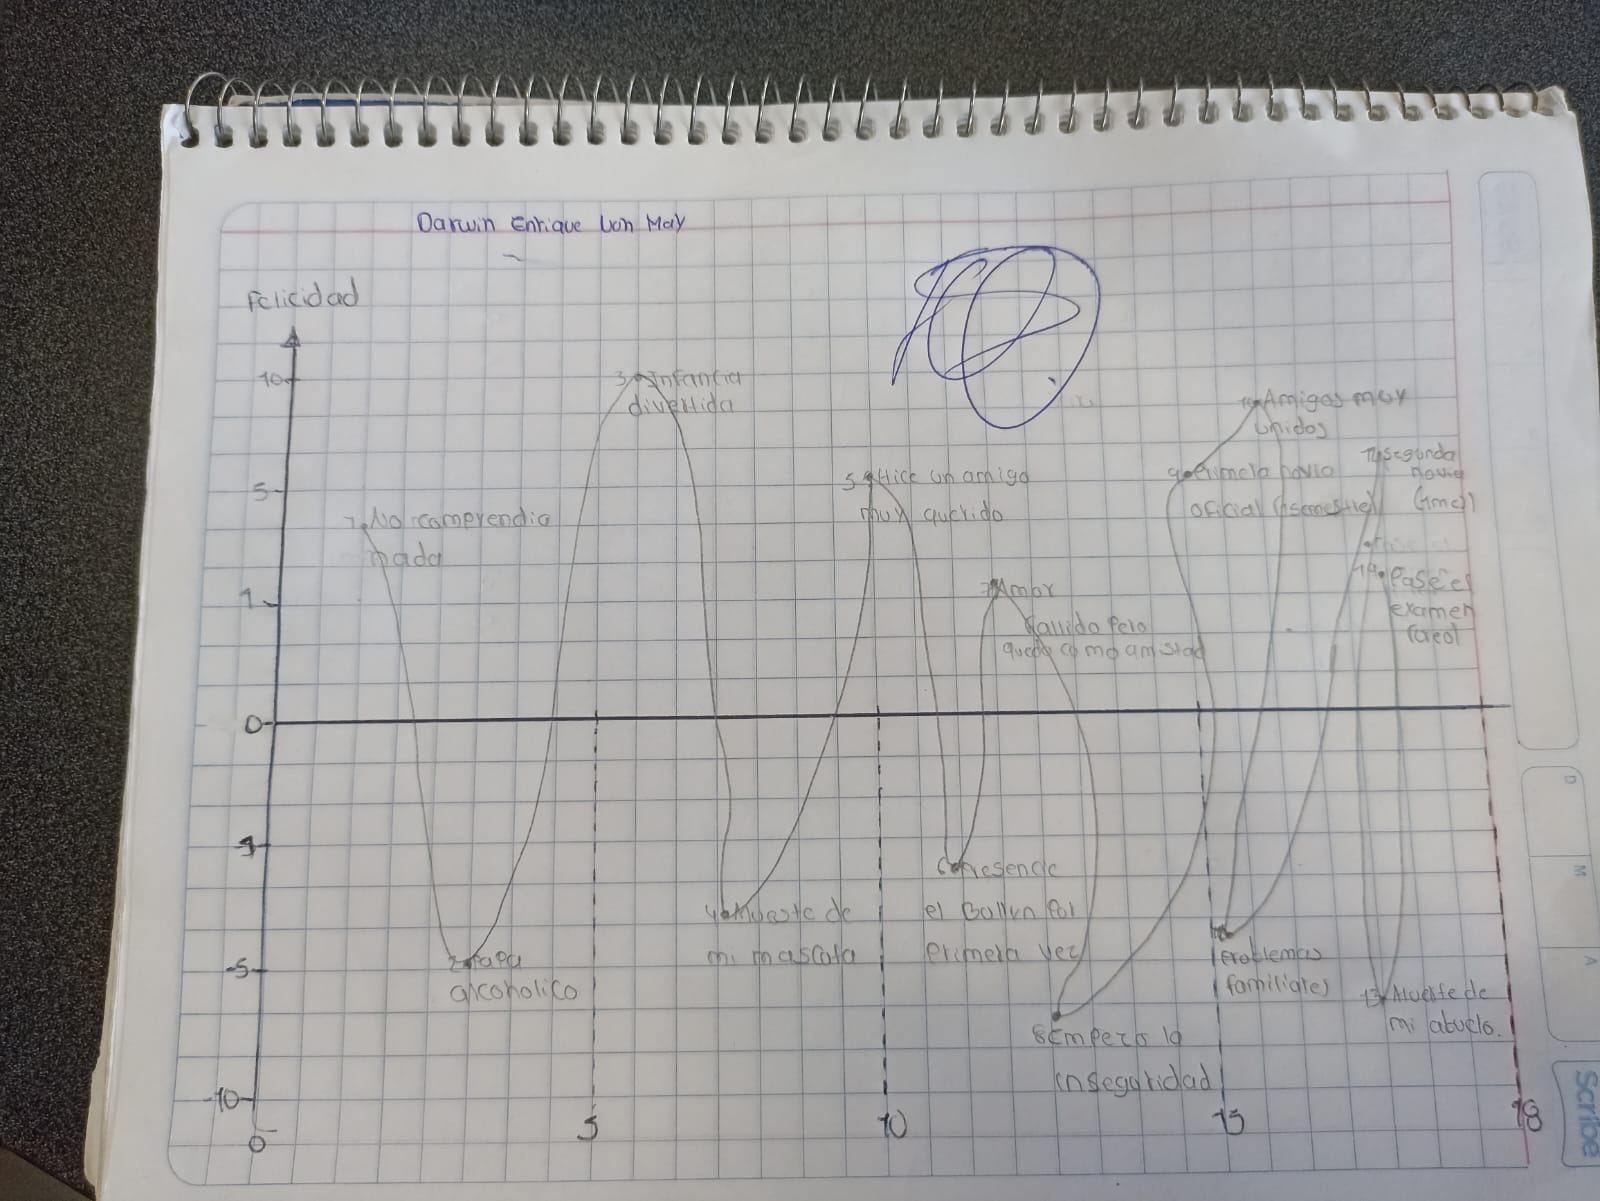 Darwin Enrique Uon May
Felicidad
10
5
1
0
-1
-5
-10
0
5
10
15
18
1. No comprendia
nada
2. Papa
alcoholico
3. Infancia
divertida
4. Muerte de
mi mascota
5. Hice un amigo
muy querido
6. Presencie
el Bullyn por
primera vez
7. Amor
fallido pero
quedo como amistad
8. Empezo la
inseguridad
9. Primera novia
oficial (1 semestre)
10. Amigos muy
unidos
Problemas
familiares
12. Segunda
novia
(1mes)
13. Muerte de
mi abuelo.
14. Pasé el
examen
D
M
A
Scribe